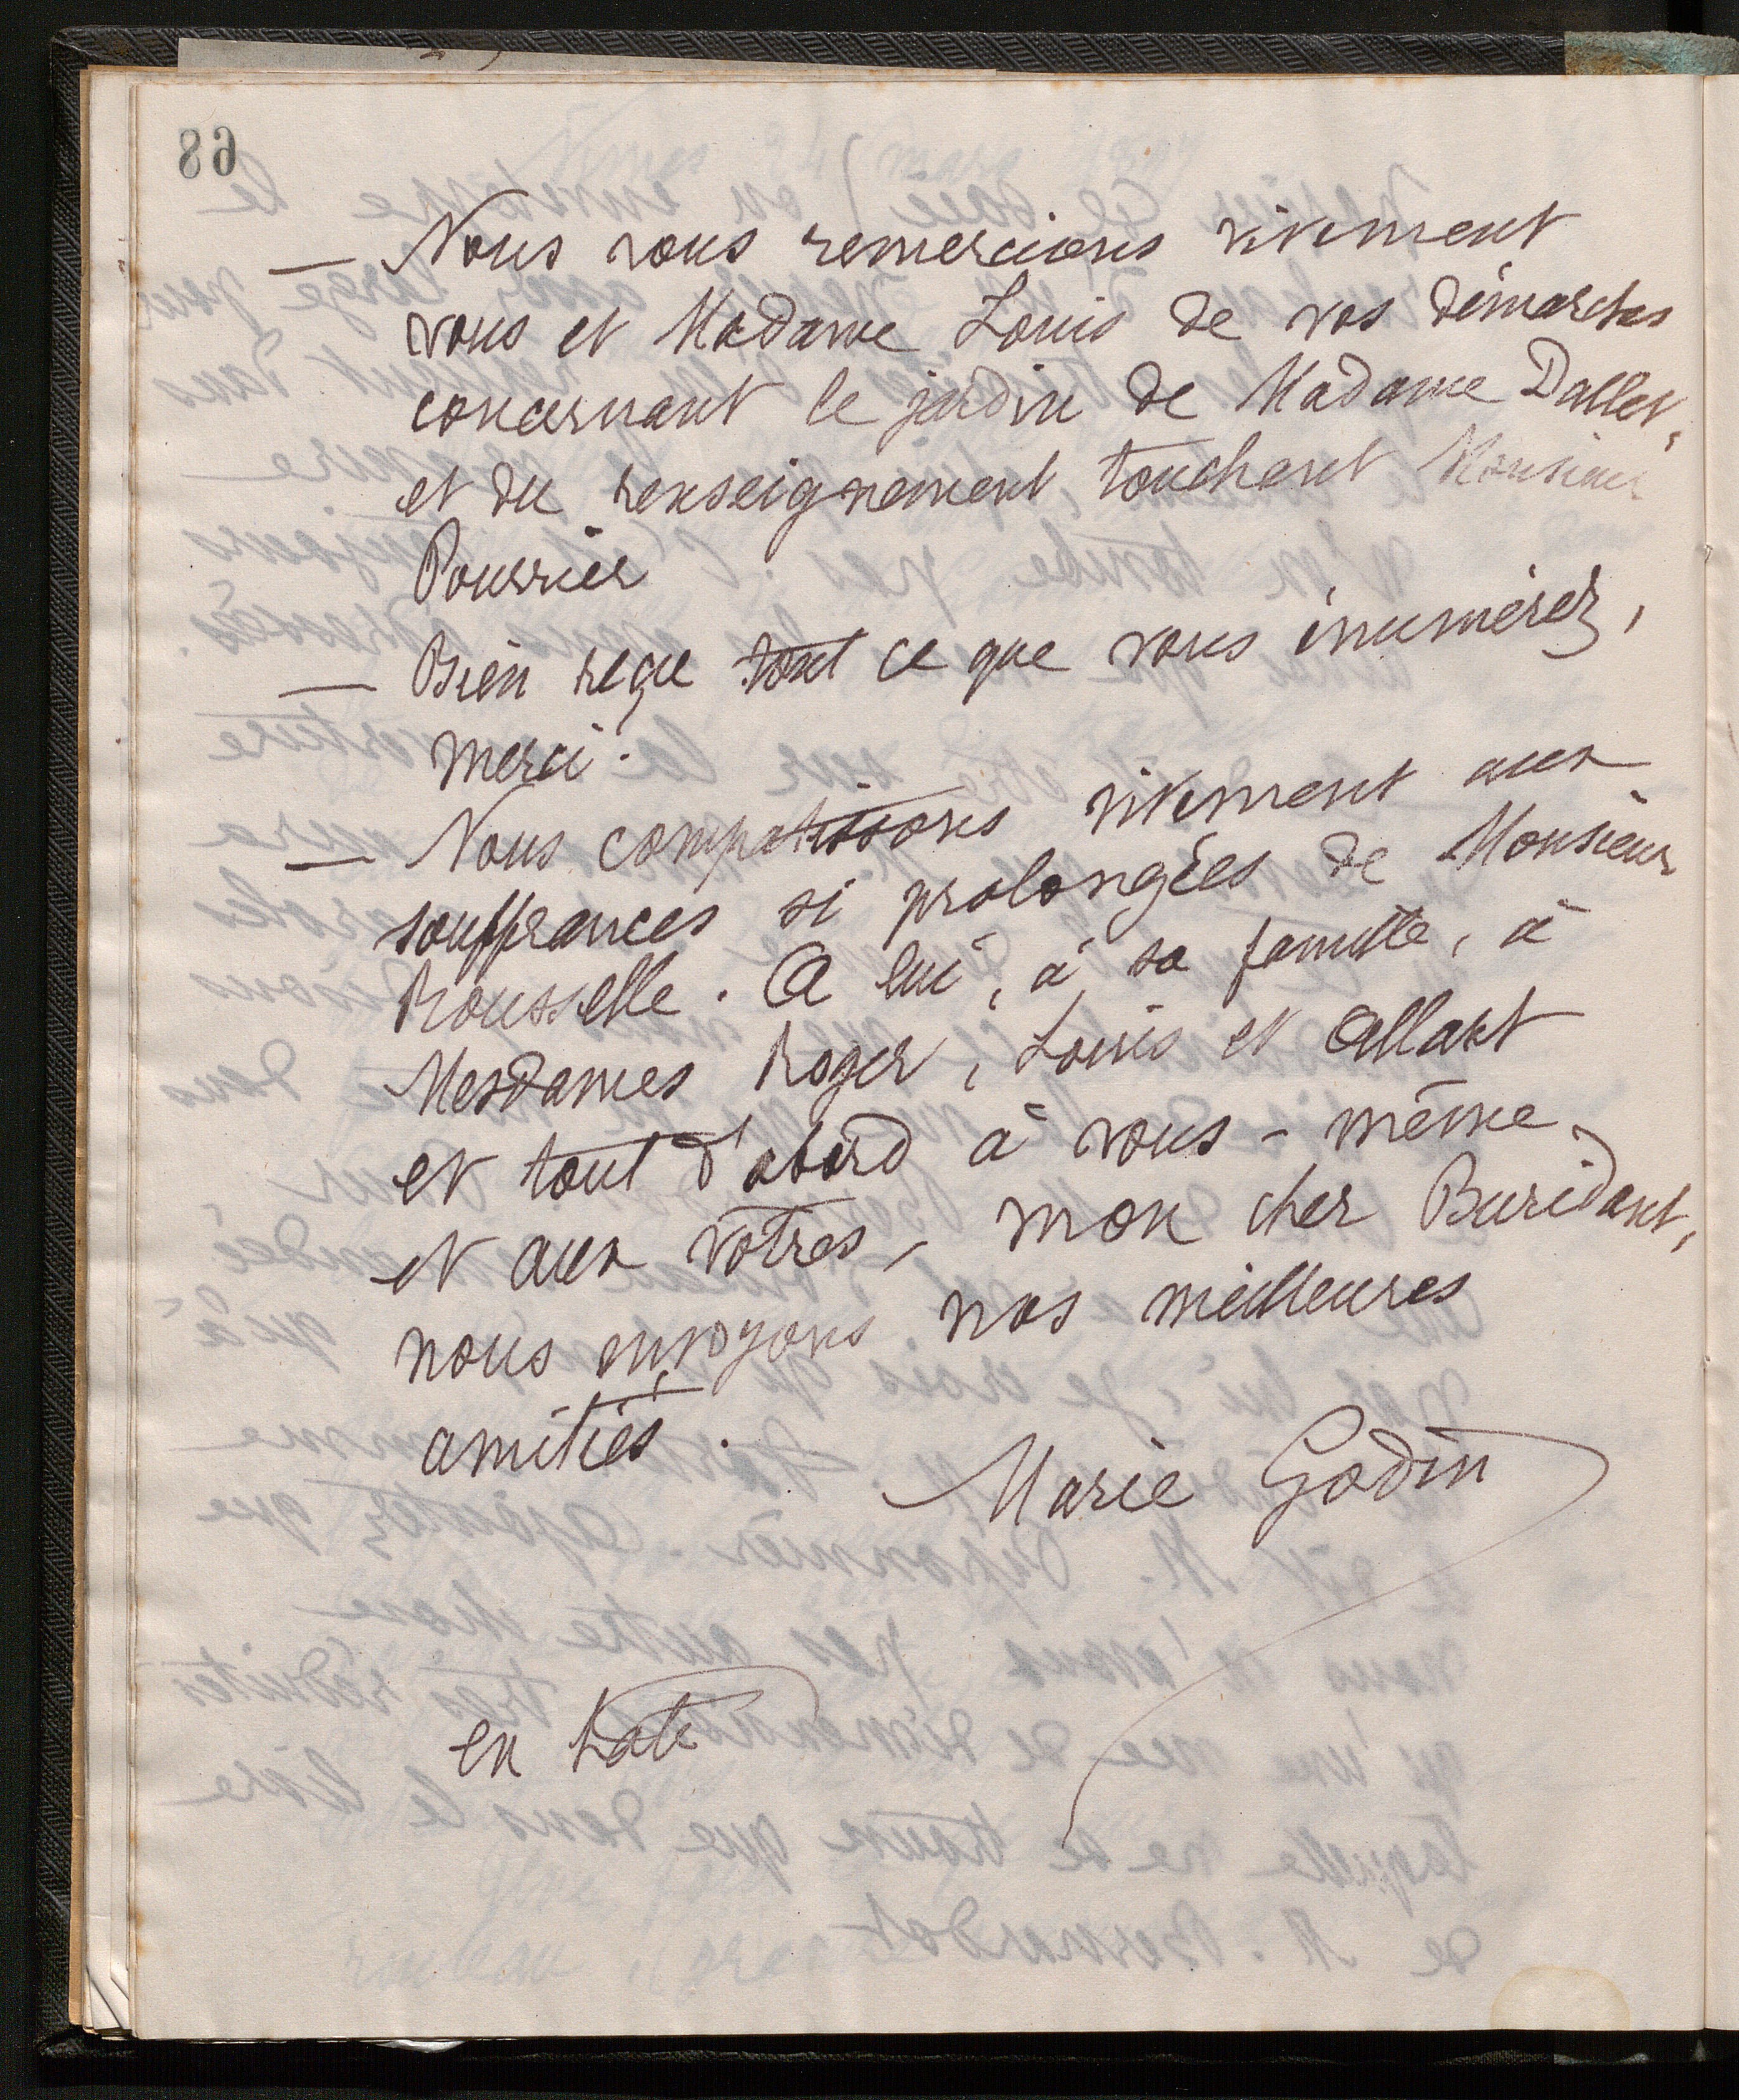 89
— Nous vous remercions vivement
vous et Madame Louis de vos démarches
concernant le jardin de Madame Dallet,
et du renseignement touchant Monsieur
Pourrier
— Bien reçu tout ce que vous énumérez,
merci.
— Nous compatissons vivement aux
souffrances si prolongées de Monsieur
Rousselle. A lui, à sa famille, à
Mesdames Roger, Louis et Allart
et tout d'abord à vous-même
et aux vôtres, mon cher Buridant,
nous envoyons nos meilleures
amitiés.
Marie Godin
en hate